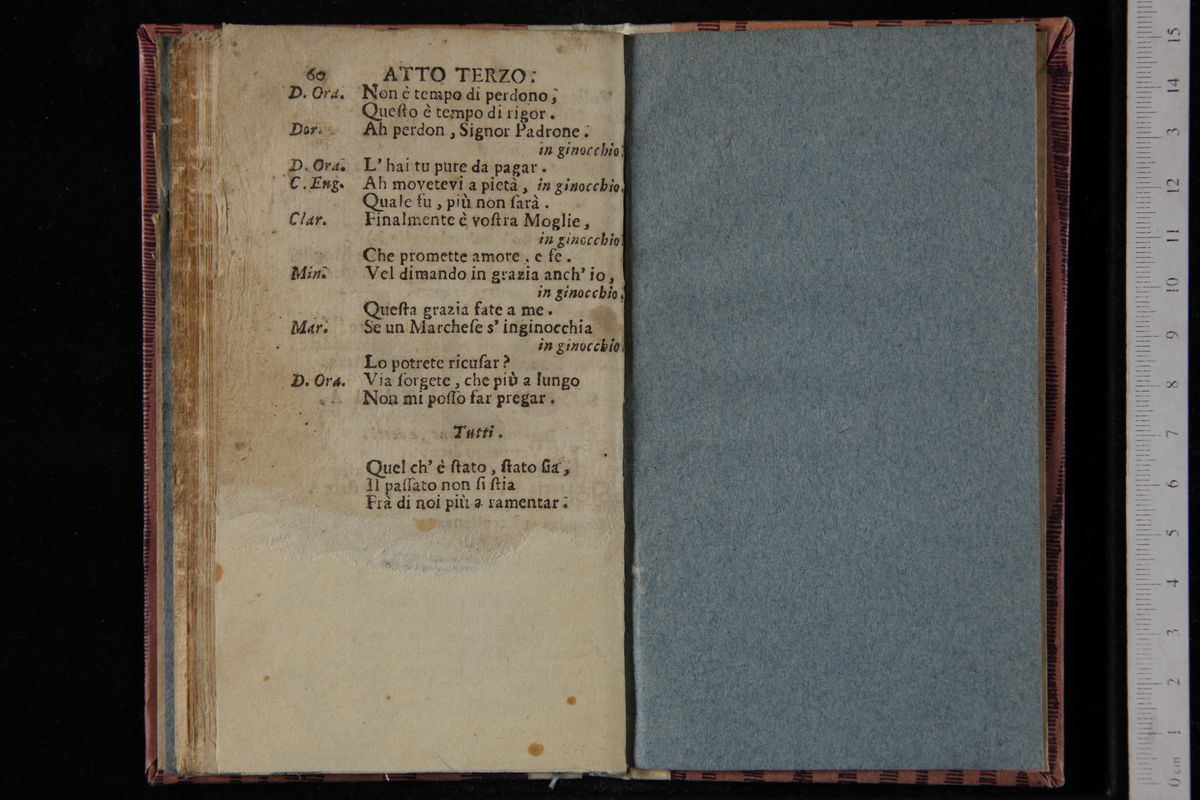 60 ATTO TERZO.
D. Ora. Non è tempo di perdono,
Queſto è tempo di rigor.
Dor. Ah perdon, Signor Padrone.
in ginocchio.
D. Ora. L' hai tu pure da pagar.
C. Eug. Ah movetevi a pietà, in ginocchio.
Quale fu, più non ſarà.
Clar. Finalmente è voſtra Moglie,
in ginocchio.
Che promette amore, e fe.
Min. Vel dimando in grazia anch' io,
in ginocchio.
Queſta grazia fate a me.
Mar. Se un Marcheſe s' inginocchia
in ginocchio.
Lo potrete ricuſar?
D. Ora. Via ſorgete, che più a lungo
Non mi poſſo far pregar.
Tutti.
Quel ch' è ſtato, ſtato ſia,
Il paſſato non ſi ſtia
Frà di noi più a ramentar.
0 cm 1 2 3 4 5 6 7 8 9 10 11 12 3 14 15